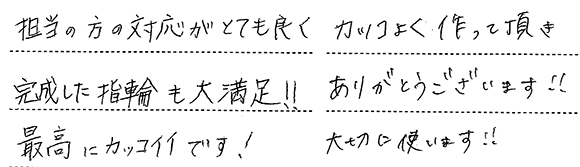 担当の方の対応がとても良く
完成した指輪も大満足!!
最高にカッコイイです!
カッコよく作って頂き
ありがとうございます!!
大切に使います!!